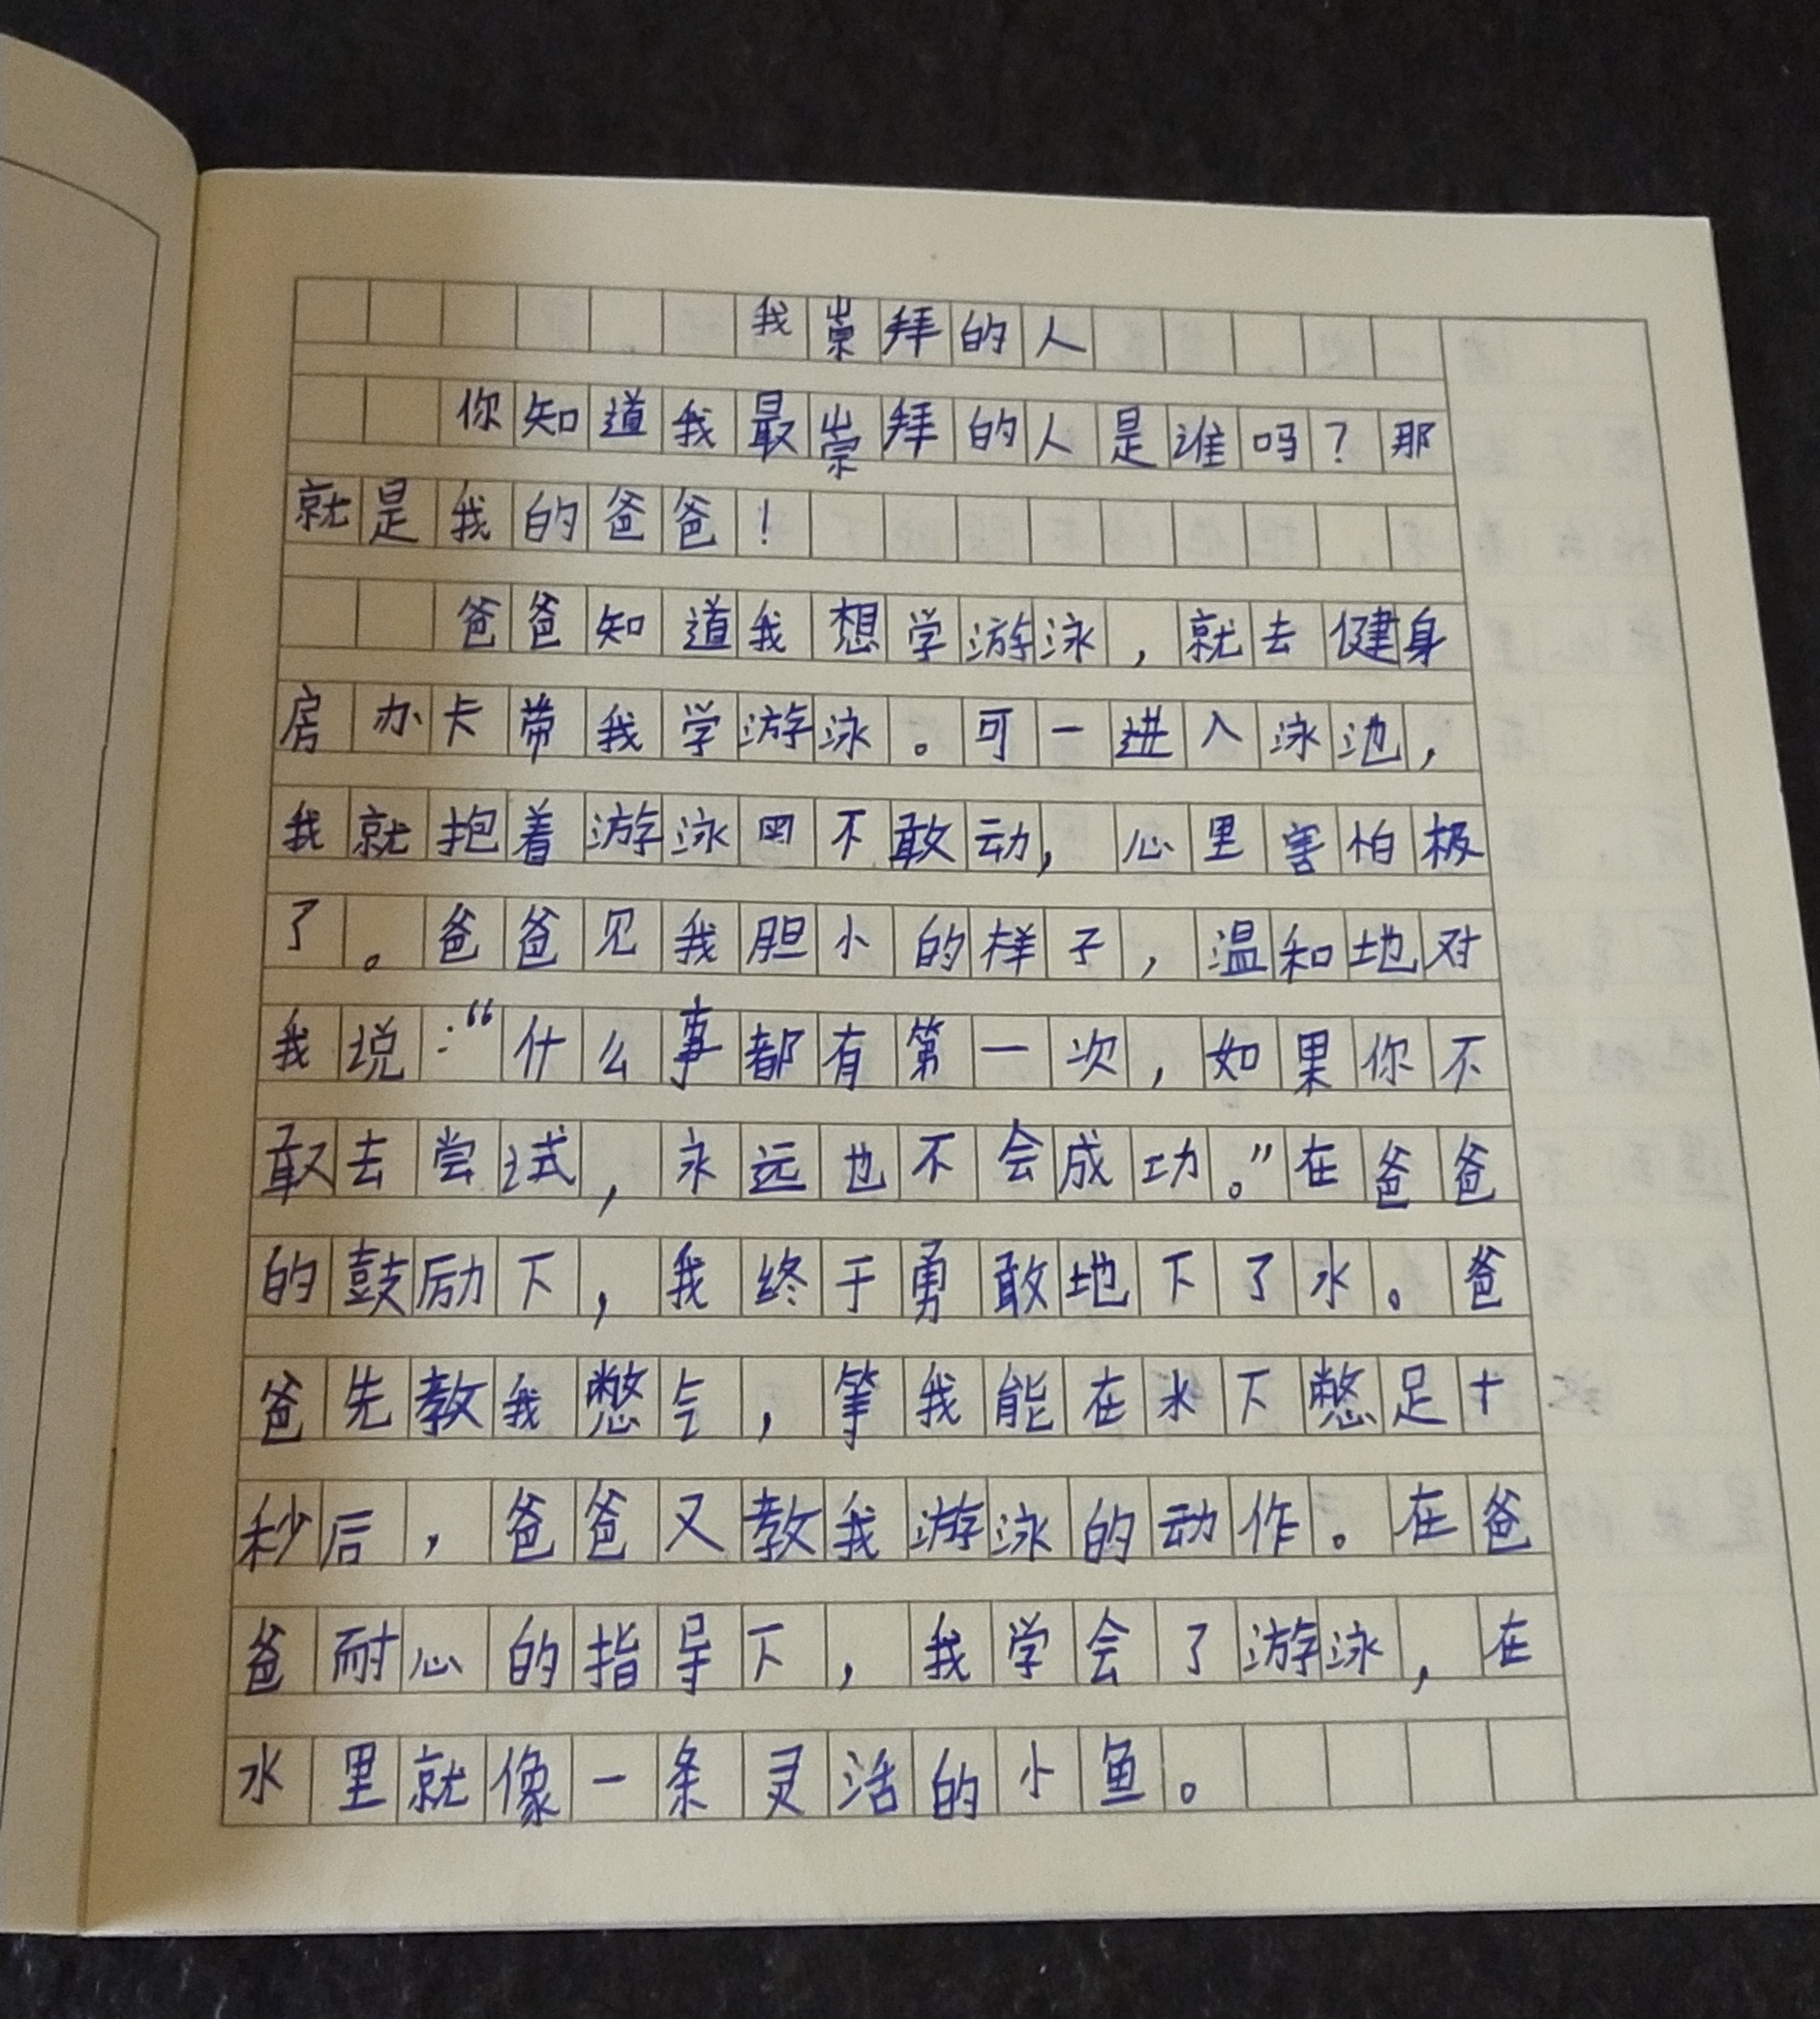 我崇拜的人
你知道我最崇拜的人是谁吗？那
就是我的爸爸！
爸爸知道我想学游泳，就去健身
房办卡带我学游泳。可一进入泳池，
我就抱着游泳不敢动，心里害怕极
了。爸爸见我胆小的样子，温和地对
我说：“什么事都有第一次，如果你不
敢去尝试，永远也不会成功。”在爸爸
的鼓励下，我终于勇敢地下了水。爸
爸先教我憋气，等我能在水下憋足十
秒后，爸爸又教我游泳的动作。在爸
爸耐心的指导下，我学会了游泳，在
水里就像一条灵活的小鱼。